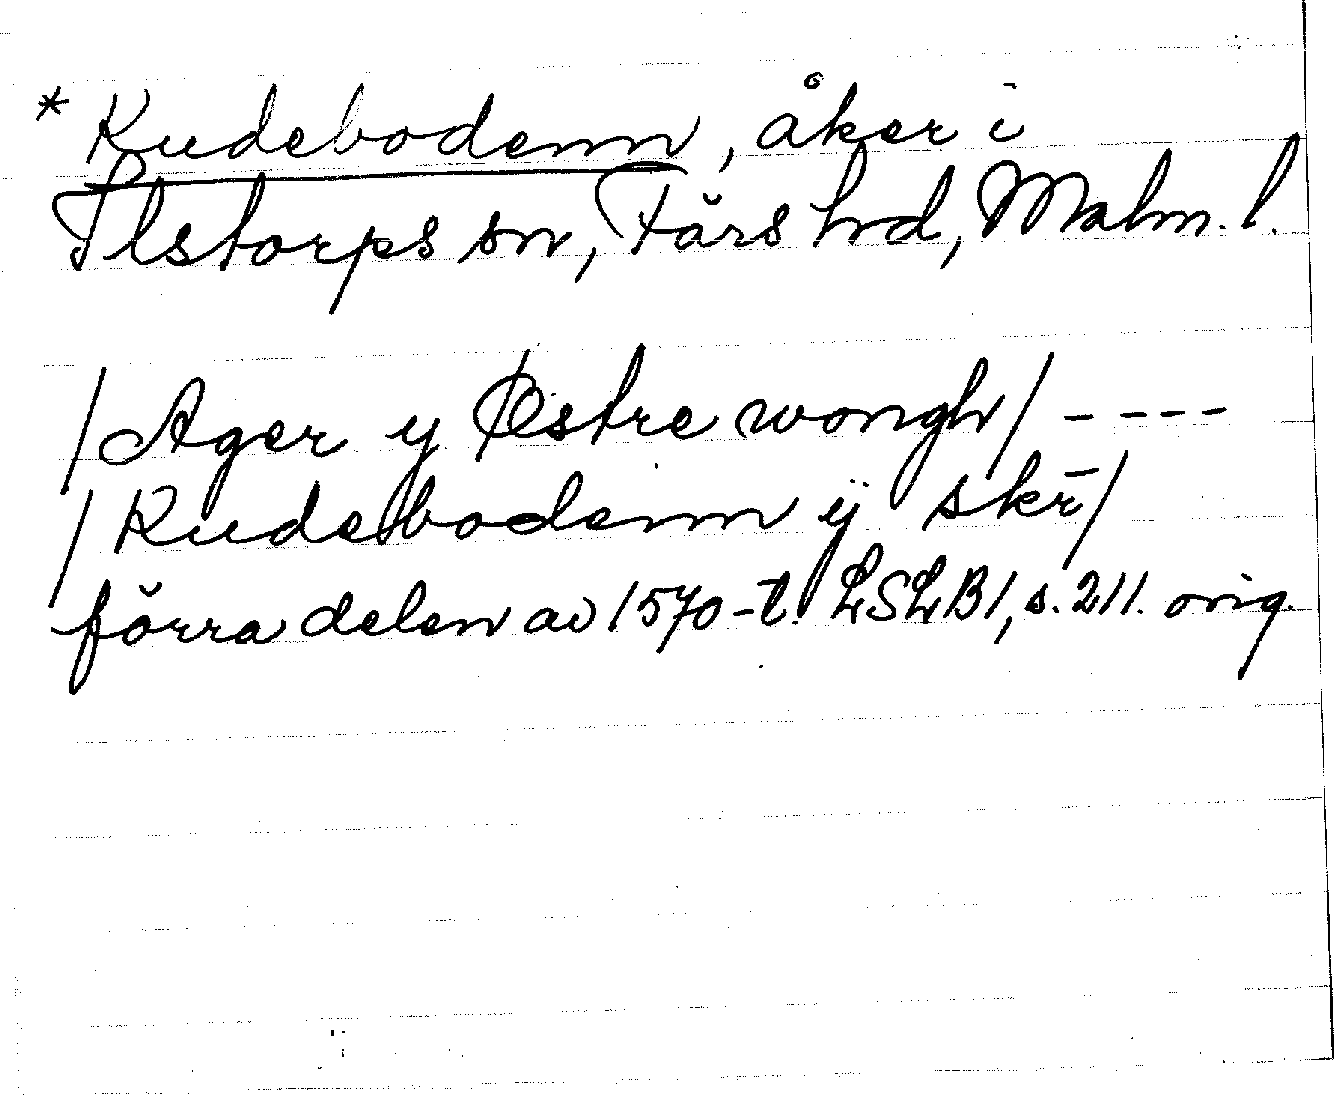 * Rudebodenn, åker i
Ilstorps sn, Färs hd, Malm. l.
/Ager y Østre wongh/ - - - -
/Rudebodenn ij skr̄/
förra delen av 1570-t. LSLB1, s. 211. orig.